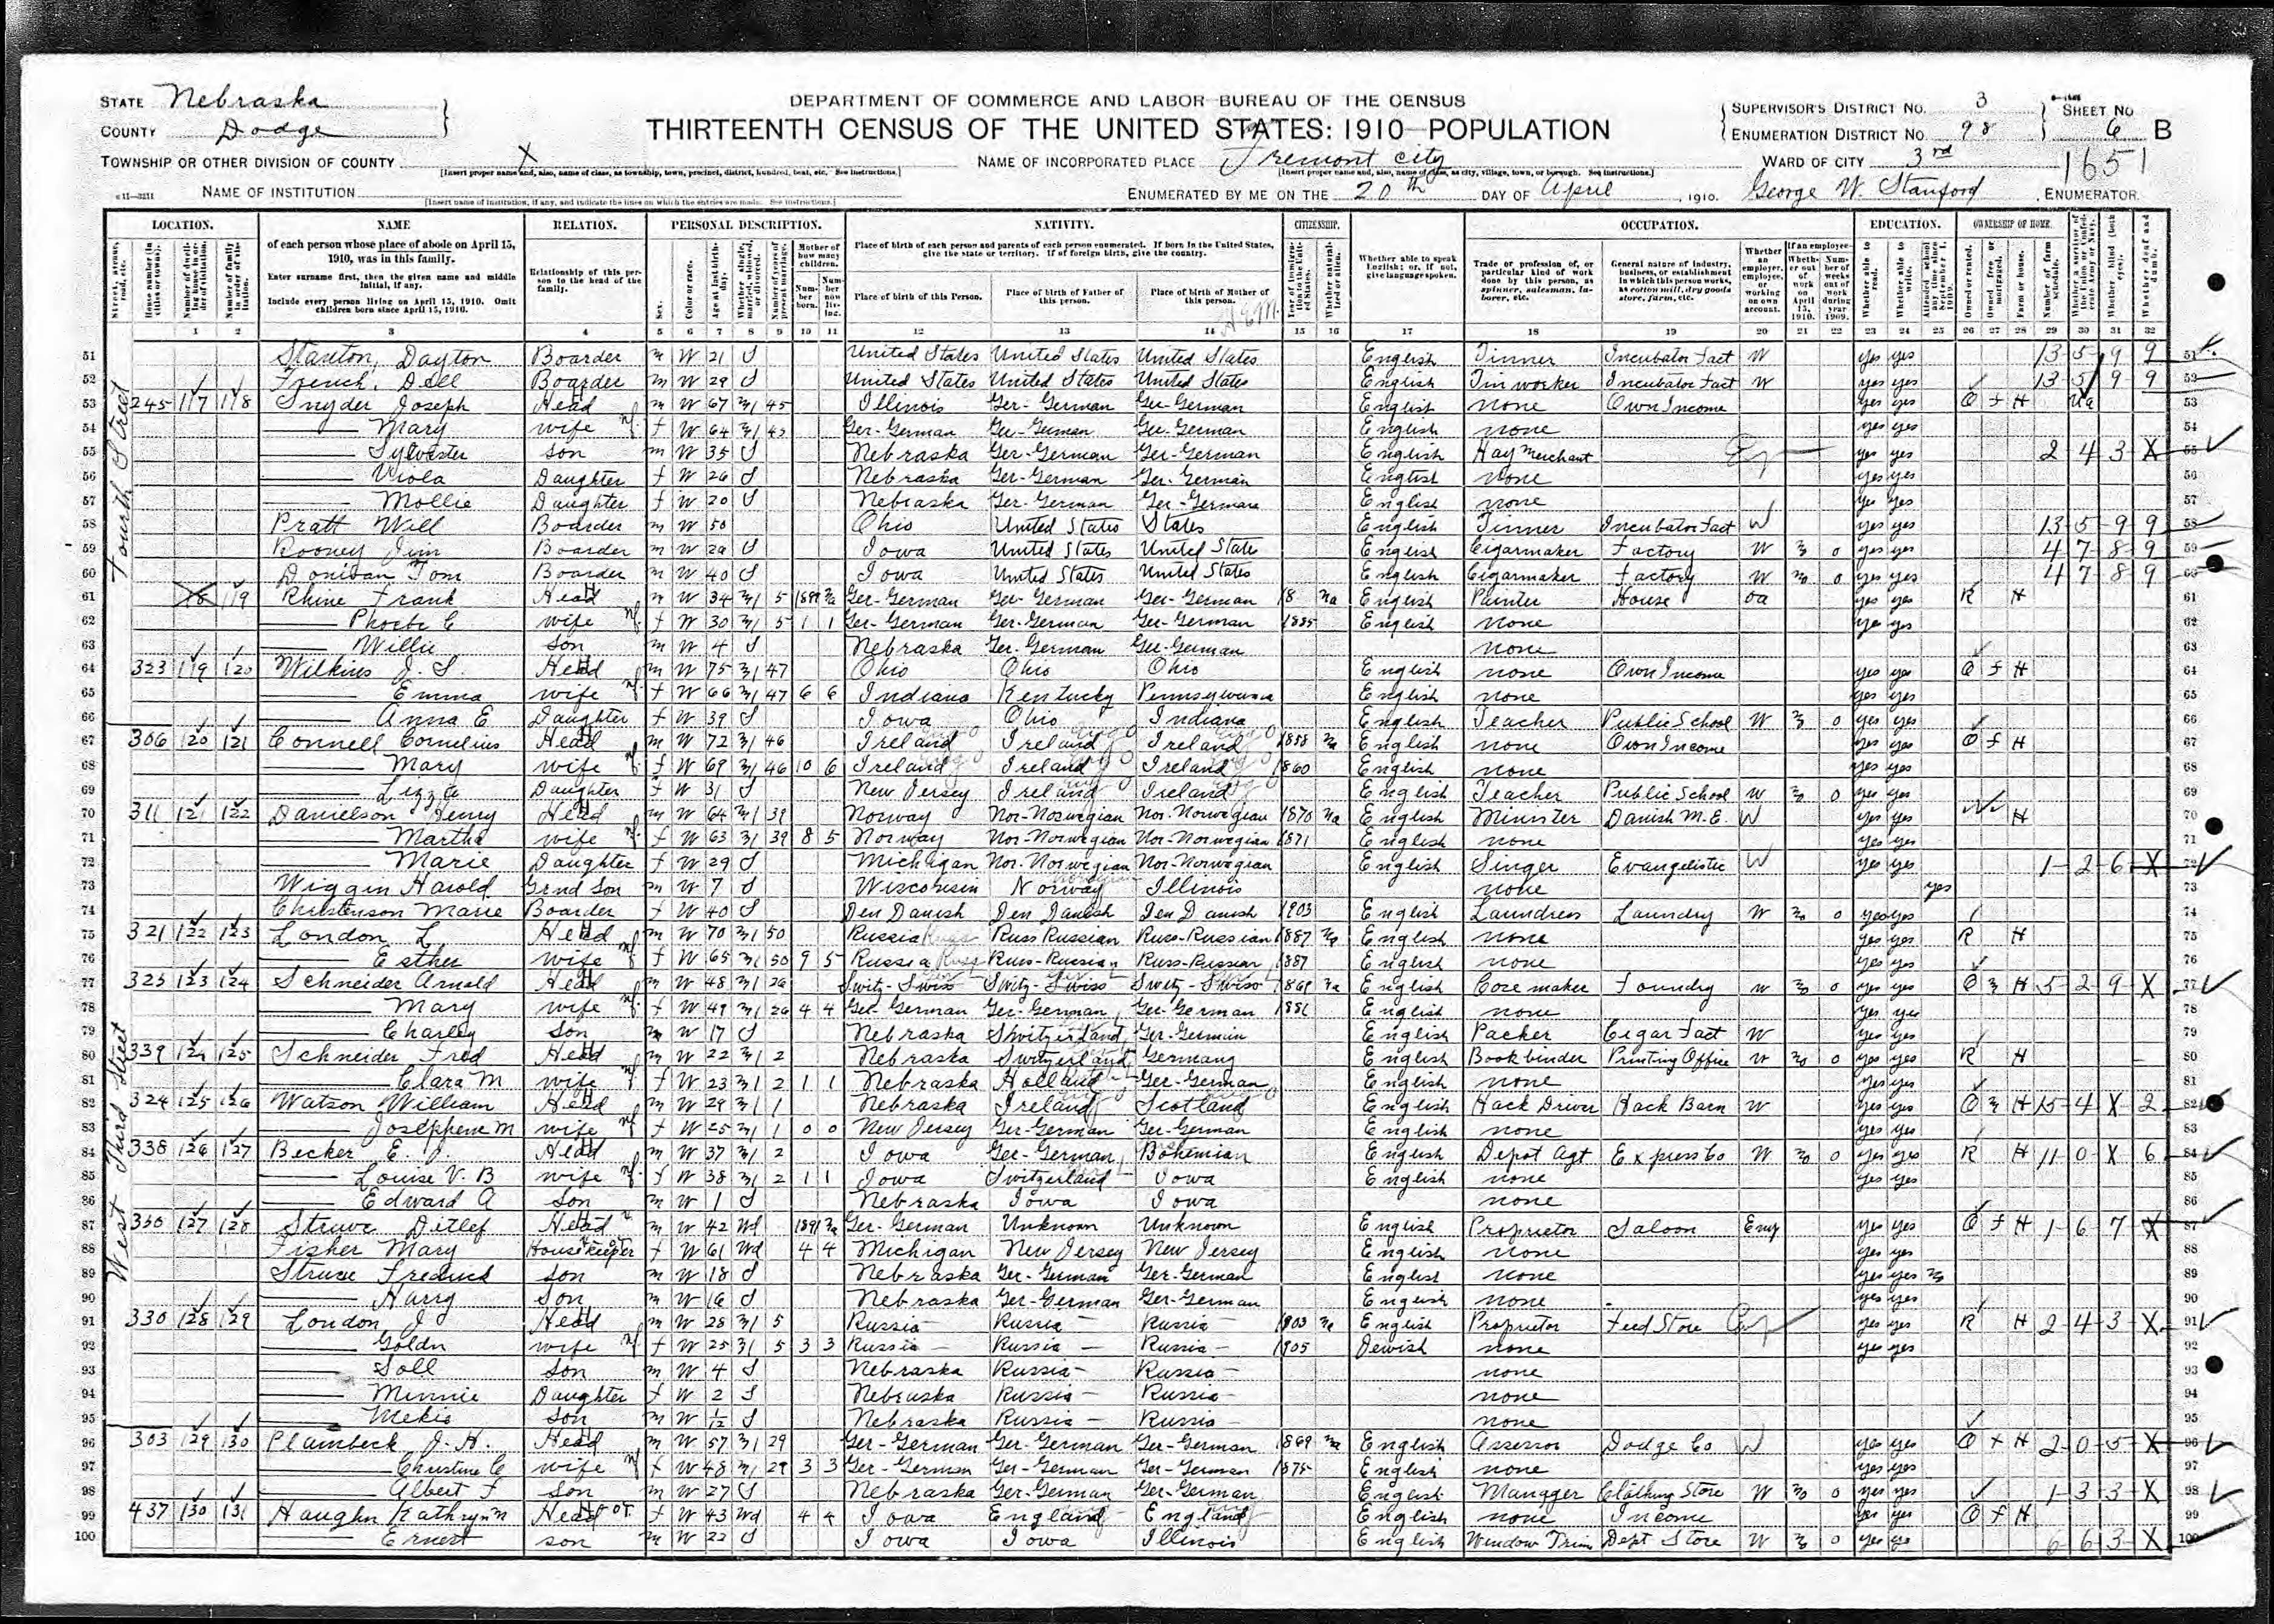 STATE Nebraska
COUNTY Dodge
DEPARTMENT OF COMMERCE AND LABOR-BUREAU OF THE CENSUS
THIRTEENTH CENSUS OF THE UNITED STATES: 1910 POPULATION
SUPERVISOR'S DISTRICT NO. 3
ENUMERATION DISTRICT NO. 98
SHEET NO. 6 B
TOWNSHIP OR OTHER DIVISION OF COUNTY X
NAME OF INCORPORATED PLACE Fremont city
WARD OF CITY 3rd
1651
NAME OF INSTITUTION
ENUMERATED BY ME ON THE 20th DAY OF April, 1910. George W. Stanford, ENUMERATOR
LOCATION. NAME RELATION. PERSONAL DESCRIPTION. NATIVITY. CITIZENSHIP. OCCUPATION. EDUCATION. OWNERSHIP OF HOME.
of each person whose place of abode on April 15, 1910, was in this family.
Enter surname first, then the given name and middle initial, if any.
Include every person living on April 15, 1910. Omit children born since April 15, 1910.
Relationship of this person to the head of the family.
Place of birth of each person and parents of each person enumerated. If born in the United States, give the state or territory. If of foreign birth, give the country.
Place of birth of this Person. Place of birth of Father of this person. Place of birth of Mother of this person.
Whether able to speak English; or, if not, give language spoken.
1 2 3 4 5 6 7 8 9 10 11 12 13 14 15 16 17 18 19 20 21 22 23 24 25 26 27 28 29 30 31 32
Fourth Street
West Third Street
51 Boarder m W 21 S United States United States United States English Tinner Incubator Fact W yes yes 13 5 9 9 51
52 French, Dell Boarder m W 29 S United States United States United States English Tin worker Incubator Fact W yes yes 13 5 9 9 52
53 245 117 118 Snyder Joseph Head m W 67 M1 45 Illinois Ger-German Ger-German English none Own Income yes yes O F H 53
54 Mary wife f W 64 M1 45 Ger-German Ger-German Ger-German English none yes yes 54
55 Sylvester son m W 35 S Nebraska Ger-German Ger-German English Hay Merchant yes yes 2 4 3 X 55
56 Viola Daughter f W 26 S Nebraska Ger-German Ger-German English none yes yes 56
57 Mollie Daughter f W 20 S Nebraska Ger-German Ger-German English none yes yes 57
58 Pratt Will Boarder m W 50 Ohio United States States English Tinner Incubator Fact W yes yes 13 5 9 9 58
59 Rooney Jim Boarder m W S Iowa United States United States English Cigarmaker Factory W No 0 yes yes 4 7 8 9 59
60 Donivan Tom Boarder m W 40 S Iowa United States United States English Cigarmaker Factory W No 0 yes yes 4 7 8 9 60
61 118 119 Rhine Frank Head m W 34 M1 5 Ger-German Ger-German Ger-German 18 Na English Painter House oa yes yes R H 61
62 Phoebe C wife f W 30 M1 5 1 1 Ger-German Ger-German Ger-German 1885 English none yes yes 62
63 Willie son m W 4 S Nebraska Ger-German Ger-German none 63
64 323 119 120 Wilkins J. S. Head m W 75 M1 47 Ohio Ohio Ohio English none Own Income yes yes O F H 64
65 Emma wife f W 66 M1 47 6 6 Indiana Kentucky Pennsylvania English none yes yes 65
66 Anna E Daughter f W 39 S Iowa Ohio Indiana English Teacher Public School W No 0 yes yes 66
67 306 120 121 Connell Cornelius Head m W 72 M1 46 Ireland Ireland Ireland 1858 Na English none Own Income yes yes O F H 67
68 Mary wife f W 69 M1 46 10 6 Ireland Ireland Ireland 1860 English none yes yes 68
69 Lizzie Daughter f W 31 S New Jersey Ireland Ireland English Teacher Public School W No 0 yes yes 69
70 311 121 122 Danielson Head m W 64 M1 39 Norway Nor-Norwegian Nor-Norwegian 1870 Na English Minister Danish M.E. W yes yes H 70
71 Martha wife f W 63 M1 39 8 5 Norway Nor-Norwegian Nor-Norwegian 1871 English none yes yes 71
72 Marie Daughter f W 29 S Michigan Nor-Norwegian Nor-Norwegian English Singer Evangelistic W yes yes 1 2 6 X 72
73 Wiggin Harold Grnd Son m W 7 S Wisconsin Norway Illinois none yes 73
74 Christenson Marie Boarder f W 40 S Den Danish Den Danish Den Danish 1903 English Laundress Laundry W No 0 yes yes 74
75 321 122 123 London L Head m W 70 M1 50 Russia Russ Russian Russ-Russian 1887 Na English none yes yes R H 75
76 Esther wife f W 65 M1 50 9 5 Russia Russ-Russian Russ-Russian 1887 English none yes yes 76
77 325 123 124 Schneider Arnold Head m W 48 M1 26 Switz-Swiss Switz-Swiss Switz-Swiss 1869 Na English Core maker Foundry W No 0 yes yes O M H 5 2 9 X 77
78 Mary wife f W 49 M1 26 4 4 Ger-German Ger-German Ger-German 1881 English none yes yes 78
79 Charley son m W 17 S Nebraska Switzerland Ger-German English Packer Cigar Fact W yes yes 79
80 339 124 125 Schneider Fred Head m W 22 M1 2 Nebraska Switzerland Germany English Book binder Printing Office W No 0 yes yes R H 80
81 Clara M wife f W 23 M1 2 1 1 Nebraska Holland Ger-German English none yes yes 81
82 324 125 126 Watson William Head m W 29 M1 1 Nebraska Ireland Scotland English Hack Driver Hack Barn W yes yes O M H 15 4 X 2 82
83 Josephene M wife f W 25 M1 1 0 0 New Jersey Ger-German Ger-German English none yes yes 83
84 338 126 127 Becker E. J. Head m W 37 M1 2 Iowa Ger-German Bohemian English Depot Agt Express Co W No 0 yes yes R H 11 0 X 6 84
85 Louise V. B wife f W 38 M1 2 1 1 Iowa Switzerland Iowa English none yes yes 85
86 Edward A son m W 1 S Nebraska Iowa Iowa none 86
87 350 127 128 Struve Ditlef Head m W 42 Wd 1891 Na Ger-German Unknown Unknown English Proprietor Saloon Emp yes yes O F H 1 6 7 X 87
88 Fisher Mary Housekeeper f W 61 Wd 4 4 Michigan New Jersey New Jersey English none yes yes 88
89 Struve Fredrick son m W 18 S Nebraska Ger-German Ger-German English none yes yes No 89
90 Harry Son m W 16 S Nebraska Ger-German Ger-German English none yes yes 90
91 330 128 129 London J Head m W 28 M1 5 Russia Russia Russia 1903 Na English Proprietor Feed Store yes yes R H 2 4 3 X 91
92 Goldn wife f W 25 M1 5 3 3 Russia Russia Russia 1905 Jewish none yes yes 92
93 Soll son m W 4 S Nebraska Russia Russia none 93
94 Minnie Daughter f W 2 S Nebraska Russia Russia none 94
95 Mekie son m W 1/12 S Nebraska Russia Russia none 95
96 303 129 130 Plambeck J. H. Head m W 57 M1 29 Ger-German Ger-German Ger-German 1869 Na English Assessor Dodge Co W yes yes O F H 2 0 5 X 96
97 Christine C wife f W 48 M1 29 3 3 Ger-German Ger-German Ger-German 1875 English none yes yes 97
98 Albert F son m W 27 S Nebraska Ger-German Ger-German English Manager Clothing Store W No 0 yes yes 1 3 3 X 98
99 437 130 131 Haughn Kathryn M Head f W 43 Wd 4 4 Iowa England England English none Income yes yes O F H 99
100 Ernest son m W 22 S Iowa Iowa Illinois English Window Trim Dept Store W No 0 yes yes 6 6 3 X 100